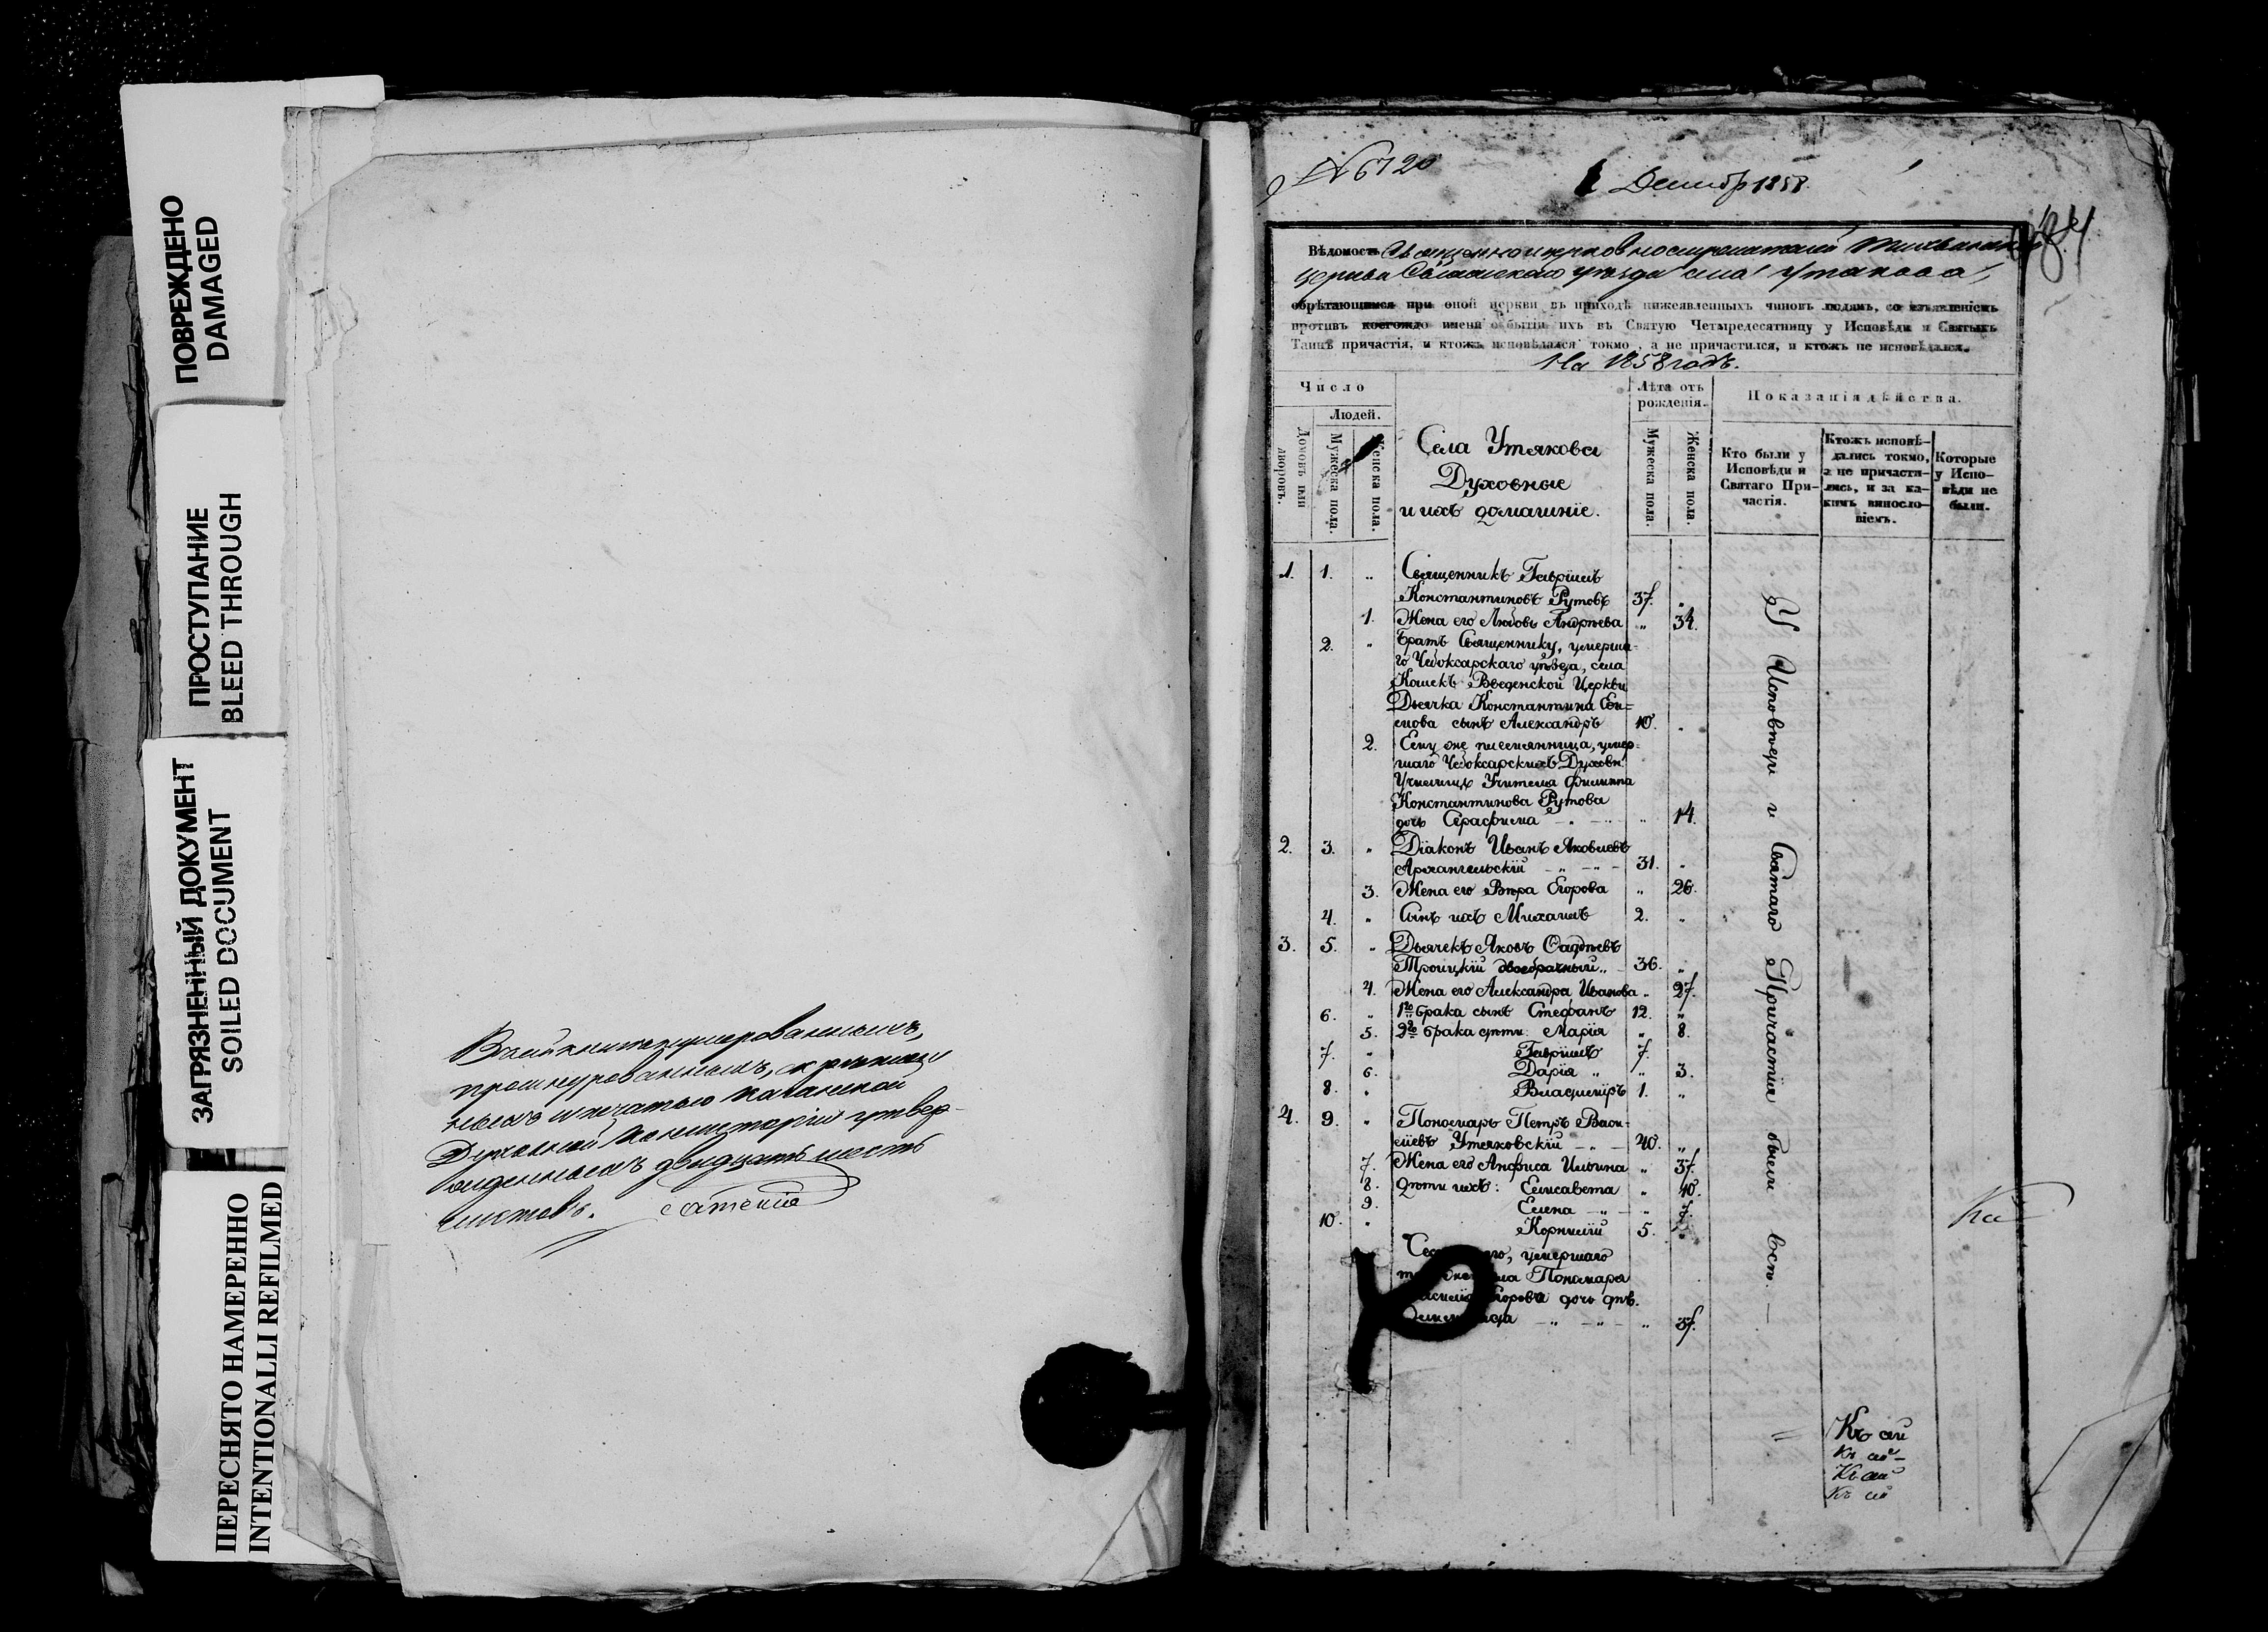 ПОВРЕЖДЕНО
DAMAGED
ПРОСТУПАНИЕ
BLEED THROUGH
ЗАГРЯЗНЕННЫЙ ДОКУМЕНТ
SOILED DOCUMENT
ПЕРЕСНЯТО НАМЕРЕННО
INTENTIONALLI REFILMED
Духовной Консисторіи утвер-
жденныхъ двадцать шесть
листовъ.
№ 6120
1858.
Вѣдомость
церкви Свіяжскаго уѣзда села Утякова,
обрѣтающимся при оной церкви въ приходѣ нижеявленныхъ чиновъ людямъ, со изъявленіемъ
противъ коегождо имени о бытіи ихъ въ Святую Четыредесятницу у Исповѣди и Святыхъ
Таинъ причастія, и ктожъ исповѣдался токмо, а не причастился, и ктожъ не исповѣдался.
На 1858 годъ.
Число
Людей.
Домовъ или дворовъ.
Мужеска пола.
Женска пола.
Села Утякова
Духовные
и ихъ домашніе.
Лѣта отъ рожденія.
Мужеска пола.
Женска пола.
Показанія дѣйства.
Кто были у Исповѣди и Святаго Причастія.
Ктожъ исповѣ-
дались токмо,
а не причасти-
лись, и за ка-
кимъ виносло-
віемъ.
Которые
у Испо-
вѣди не
были.
1. 1. „ Священникъ Гавріилъ
Константиновъ Рутовъ 37. „
1. Жена его Любовь Андреева „ 34.
2. „ Братъ Священнику, умерша-
го Чебоксарскаго уѣзда, села
Кошекъ Введенской Церкви
Дьячка Константина Си-
сынъ Александръ 10. „
2. Ему же племянница, умер-
шаго Чебоксарскихъ Духовн.
Училищъ Учителя Филиппа
Константинова Рутова
дочь Серафима „ 14.
2. 3. „ Діаконъ Иванъ Яковлевъ
Архангельскій 31. „
3. Жена его Вѣра Егорова „ 26.
4. „ Сынъ ихъ Михаилъ 2. „
3. 5. „ Дьячекъ Яковъ Фаддѣевъ
Троицкій двоебрачный 36. „
4. Жена его Александра Иванова „ 27.
6. „ 1го брака сынъ Стефанъ 12. „
5. 2го брака дѣти: Марія „ 8.
7. „ Гавріилъ 7. „
6. Дарія „ 3.
8. „ Владиміръ 1. „
4. 9. „ Пономарь Петръ Васи-
льевъ Утяковскій 40. „
7. Жена его Анфиса Ильина „ 37.
8. Дѣти ихъ: Елисавета „ 10.
9. Елена „ 7.
10. „ Корнилій 5. „
умершаго
Пономаря
Егорова дочь дѣв.
„ 37.
У Исповѣди и Святаго Причастія были всѣ —
Ка
Къ сей
Къ сей
Къ сей
Къ сей